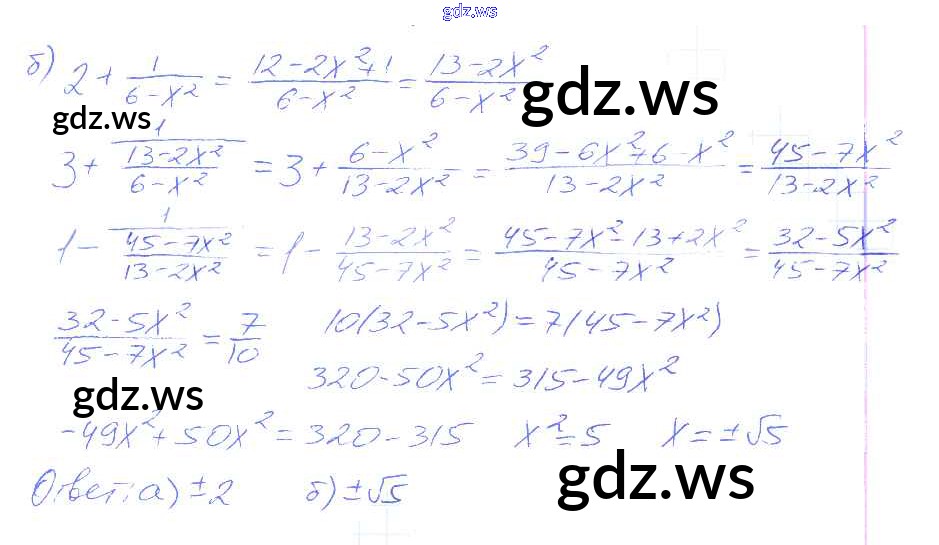 gdz.ws
б) 2 + 1/(6-x²) = (12-2x²+1)/(6-x²) = (13-2x²)/(6-x²)
gdz.ws gdz.ws
3 + 1/((13-2x²)/(6-x²)) = 3 + (6-x²)/(13-2x²) = (39-6x²+6-x²)/(13-2x²) = (45-7x²)/(13-2x²)
1 - 1/((45-7x²)/(13-2x²)) = 1 - (13-2x²)/(45-7x²) = (45-7x²-13+2x²)/(45-7x²) = (32-5x²)/(45-7x²)
(32-5x²)/(45-7x²) = 7/10 10(32-5x²) = 7(45-7x²)
320-50x² = 315-49x²
gdz.ws
-49x²+50x² = 320-315 x² = 5 x = ±√5
Ответ: а) ±2 б) ±√5
gdz.ws